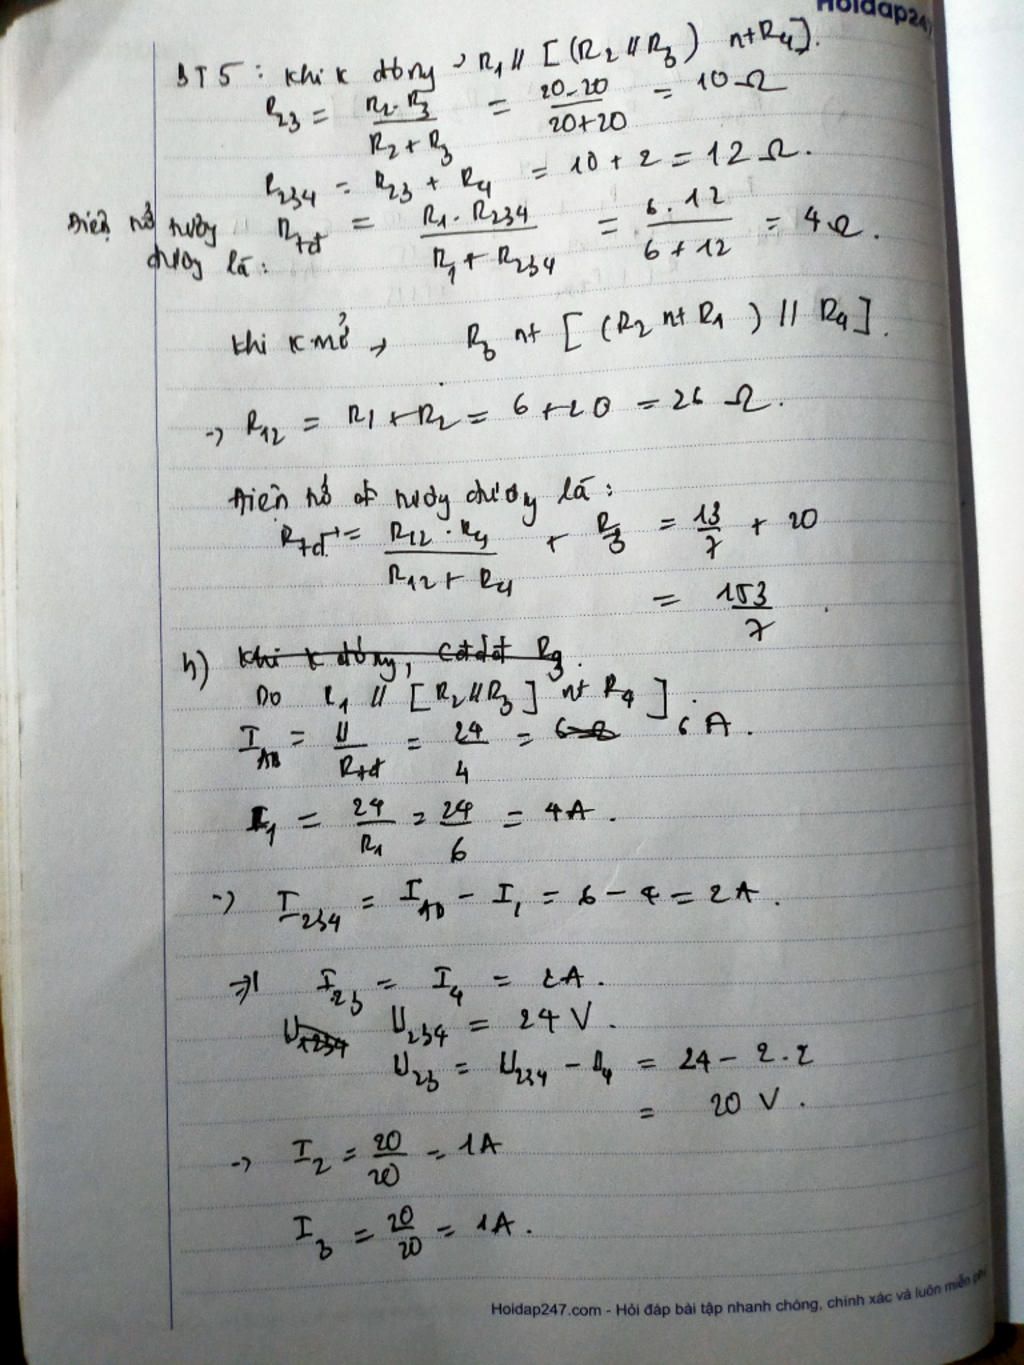 Hoidap247
BT5: Khi K đóng → R1 // [(R2 // R3) nt R4].
R23 = R2.R3 / R2 + R3 = 20.20 / 20+20 = 10 Ω
R234 = R23 + R4 = 10 + 2 = 12 Ω.
Điện trở tương đương là: Rtđ = R1.R234 / R1 + R234 = 6.12 / 6 + 12 = 4 Ω.
Khi K mở → R3 nt [(R2 nt R1) // R4].
→ R12 = R1 + R2 = 6 + 20 = 26 Ω.
Điện trở tương đương là:
Rtđ = R12.R4 / R12 + R4 + R3 = 13/7 + 20
= 153/7.
b) Khi K đóng, R3.
Do R1 // [R2 // R3] nt R4].
IAB = U/Rtđ = 24/4 = 6 A.
I1 = 24/R1 = 24/6 = 4A.
→ I234 = IAB - I1 = 6 - 4 = 2A.
=> I23 = I4 = 2A.
U1234 U234 = 24 V.
U23 = U234 - U4 = 24 - 2.2
= 20 V.
→ I2 = 20/20 = 1A
I3 = 20/20 = 1A.
Hoidap247.com - Hỏi đáp bài tập nhanh chóng, chính xác và luôn miễn phí